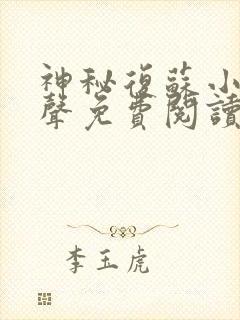 神秘復蘇小
聲免費閱讀
李玉虎